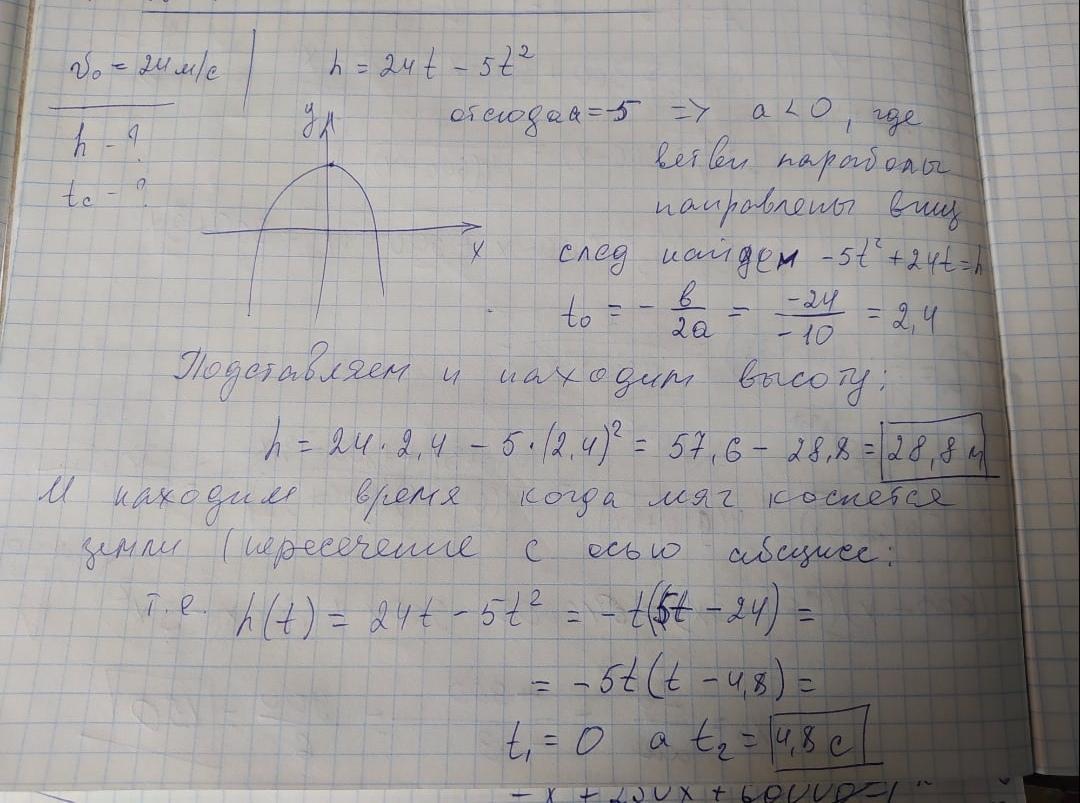 v₀ = 24 м/с
h = 24t - 5t²
h - ?
tс - ?
y
x
отсюда a = -5 => a < 0, где
ветви параболы
направлены вниз
след найдем -5t² + 24t = h
t₀ = - в/2a = -24/-10 = 2,4
Подставляем и находим высоту:
h = 24·2,4 - 5·(2,4)² = 57,6 - 28,8 = 28,8 м
И находим время когда мяч коснется
земли (пересечение с осью абсцисс:
т.е. h(t) = 24t - 5t² = -t(5t - 24) =
= -5t(t - 4,8) =
t₁ = 0 а t₂ = 4,8 с